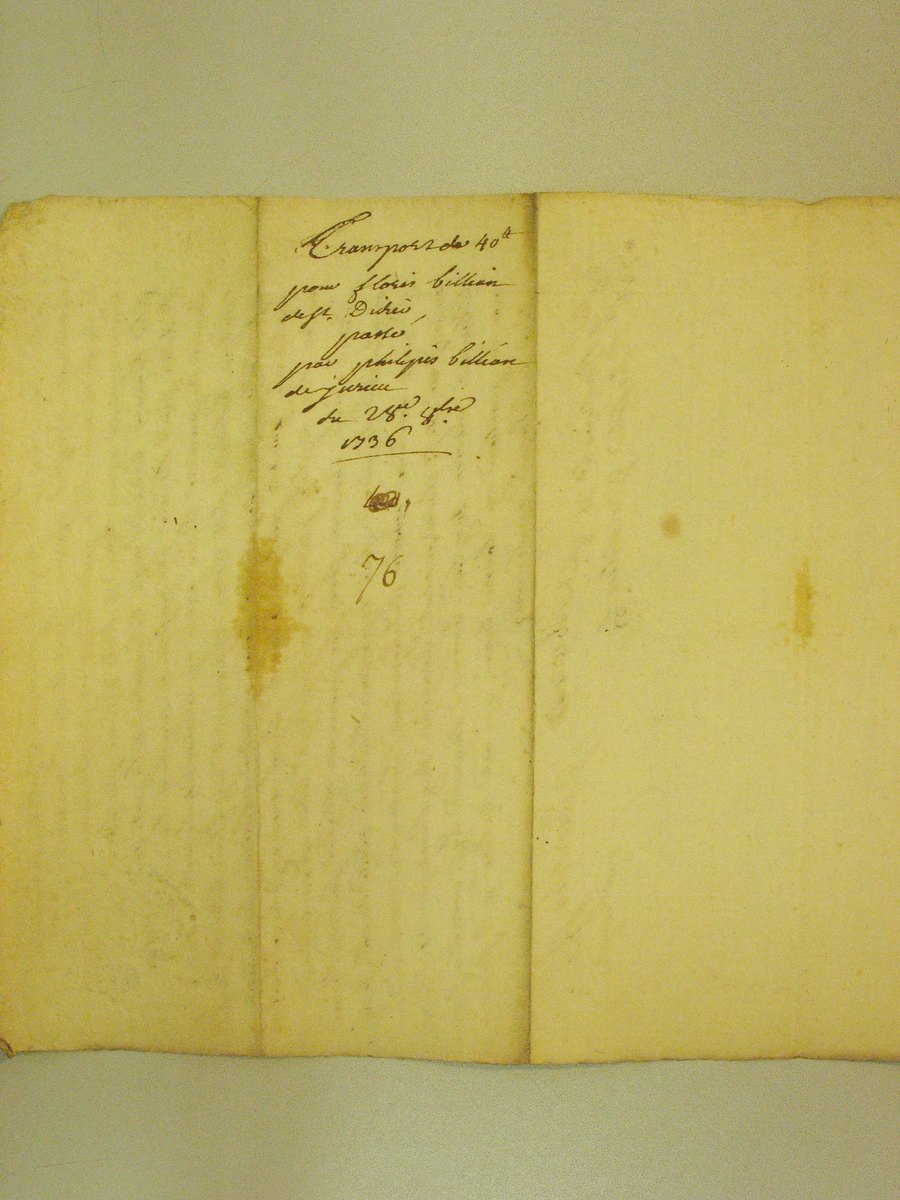 Transport de 40tt
pour floris billian
de st. Didié
passé
par philipes billian
de jurieu
du 28me 8bre
1736
76